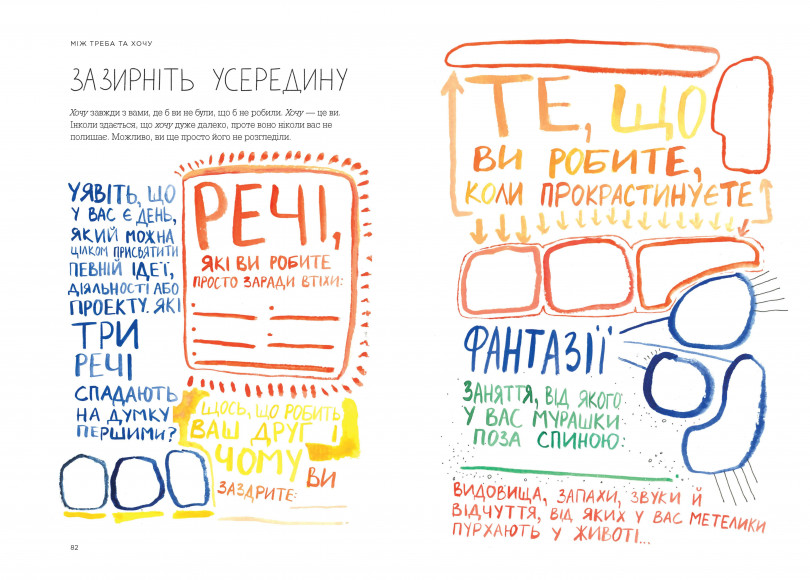 МІЖ ТРЕБА ТА ХОЧУ
ЗАЗИРНІТЬ УСЕРЕДИНУ
Хочу завжди з вами, де б ви не були, що б не робили. Хочу — це ви.
Інколи здається, що хочу дуже далеко, проте воно ніколи вас не
полишає. Можливо, ви ще просто його не розгледіли.
УЯВІТЬ, ЩО
У ВАС Є ДЕНЬ,
ЯКИЙ МОЖНА
ЦІЛКОМ ПРИСВЯТИТИ
ПЕВНІЙ ІДЕЇ,
ДІЯЛЬНОСТІ АБО
ПРОЕКТУ. ЯКІ
ТРИ
РЕЧІ
СПАДАЮТЬ
НА ДУМКУ
ПЕРШИМИ?
РЕЧІ,
ЯКІ ВИ РОБИТЕ
ПРОСТО ЗАРАДИ ВТІХИ:
ЩОСЬ, ЩО РОБИТЬ
ВАШ ДРУГ І
ЧОМУ
ВИ
ЗАЗДРИТЕ:
82
ТЕ, ЩО
ВИ РОБИТЕ,
КОЛИ ПРОКРАСТИНУЄТЕ
ФАНТАЗІЇ
ЗАНЯТТЯ, ВІД ЯКОГО
У ВАС МУРАШКИ
ПОЗА СПИНОЮ:
ВИДОВИЩА, ЗАПАХИ, ЗВУКИ Й
ВІДЧУТТЯ, ВІД ЯКИХ У ВАС МЕТЕЛИКИ
ПУРХАЮТЬ У ЖИВОТІ...